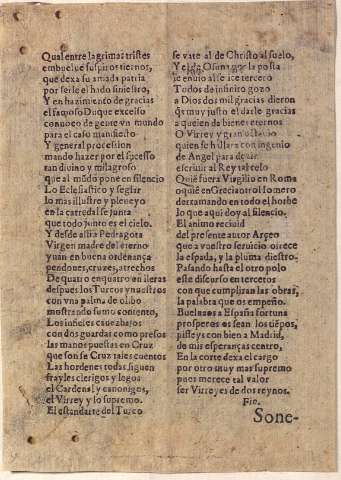 Qual entre lagrimas tristes
embuelue suspiros tiernos,
que dexa su amada patria
por serle el hado siniestro,
Y en hazimiento de gracias
el famoso Duque excelso
conuoco de gente vn mundo
para el caso manifiesto
Y general procession
mando hazer por el successo
tan diuino y milagroso
que al mũdo pone en silencio
Lo Eclesiastico y seglar
lo mas illustre y pleueyo
en la catredal se junta
que todo junto es el cielo.
Y desde alli a Pedragota
Virgen madre del eterno
yuan en buena ordenança
pendones, cruzes,
De quatro en quatro en illeras
despues los Turcos y nuestros
con vna palma de olibo
mostrando sumo contento,
Los infieles caualabajos
con dos guardas como presos
las manos puestas en Cruz
que son se Cruz tales cuentos
Las hordenes todas siguen
frayles clerigos y legos
el Cardenal y canonigos,
el Virrey y lo supremo.
El estandarte del Turco
se vate al de Christo al suelo,
Y el de Osuna por la posta
se enuio al
Todos de infinito gozo
a Dios dos mil gracias dieron
q̃ es muy justo el darle gracias
a quien da bienes eternos
O Virrey y gran octauio
quien se hallara con ingenio
de Angel para dezir
escriuir al Rey tal zelo
Quiẽ fuera Virgilio en Roma
o quiẽ en Grecia otro Homero
derramando en todo el horbe
lo que aqui doy al silencio.
El animo reciuid
del presente autor Arçeo
que a vuestro seruicio ofrece
la espada, y la pluma diestro.
Pasando hasta el otro polo
este discurso en tercetos
con que cumpliran las obras,
la palabra que os empeño.
Buelua os a España fortuna
prosperos os sean los tiẽpos,
piseys con bien a Madrid,
do mis esperanças centro,
En la corte dexa el cargo
por otro muy mas supremo
pues merece tal valor
ser Virreyes de dos reynos.
Fin.
Sone-